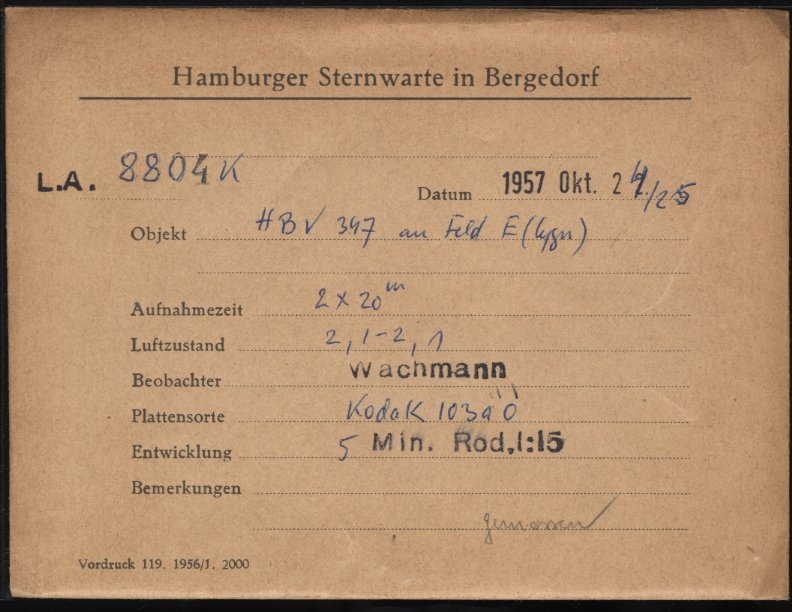 Hamburger Sternwarte in Bergedorf
L.A. 8804 K
Datum 1957 Okt. 24/25
Objekt HBV 347 an Feld E (Cygn)
Aufnahmezeit 2 x 20m
Luftzustand 2,1-2,1
Beobachter Wachmann
Plattensorte Kodak 103a O
Entwicklung 5 Min. Rod.1:15
Bemerkungen
gemessen
Vordruck 119. 1956/1. 2000